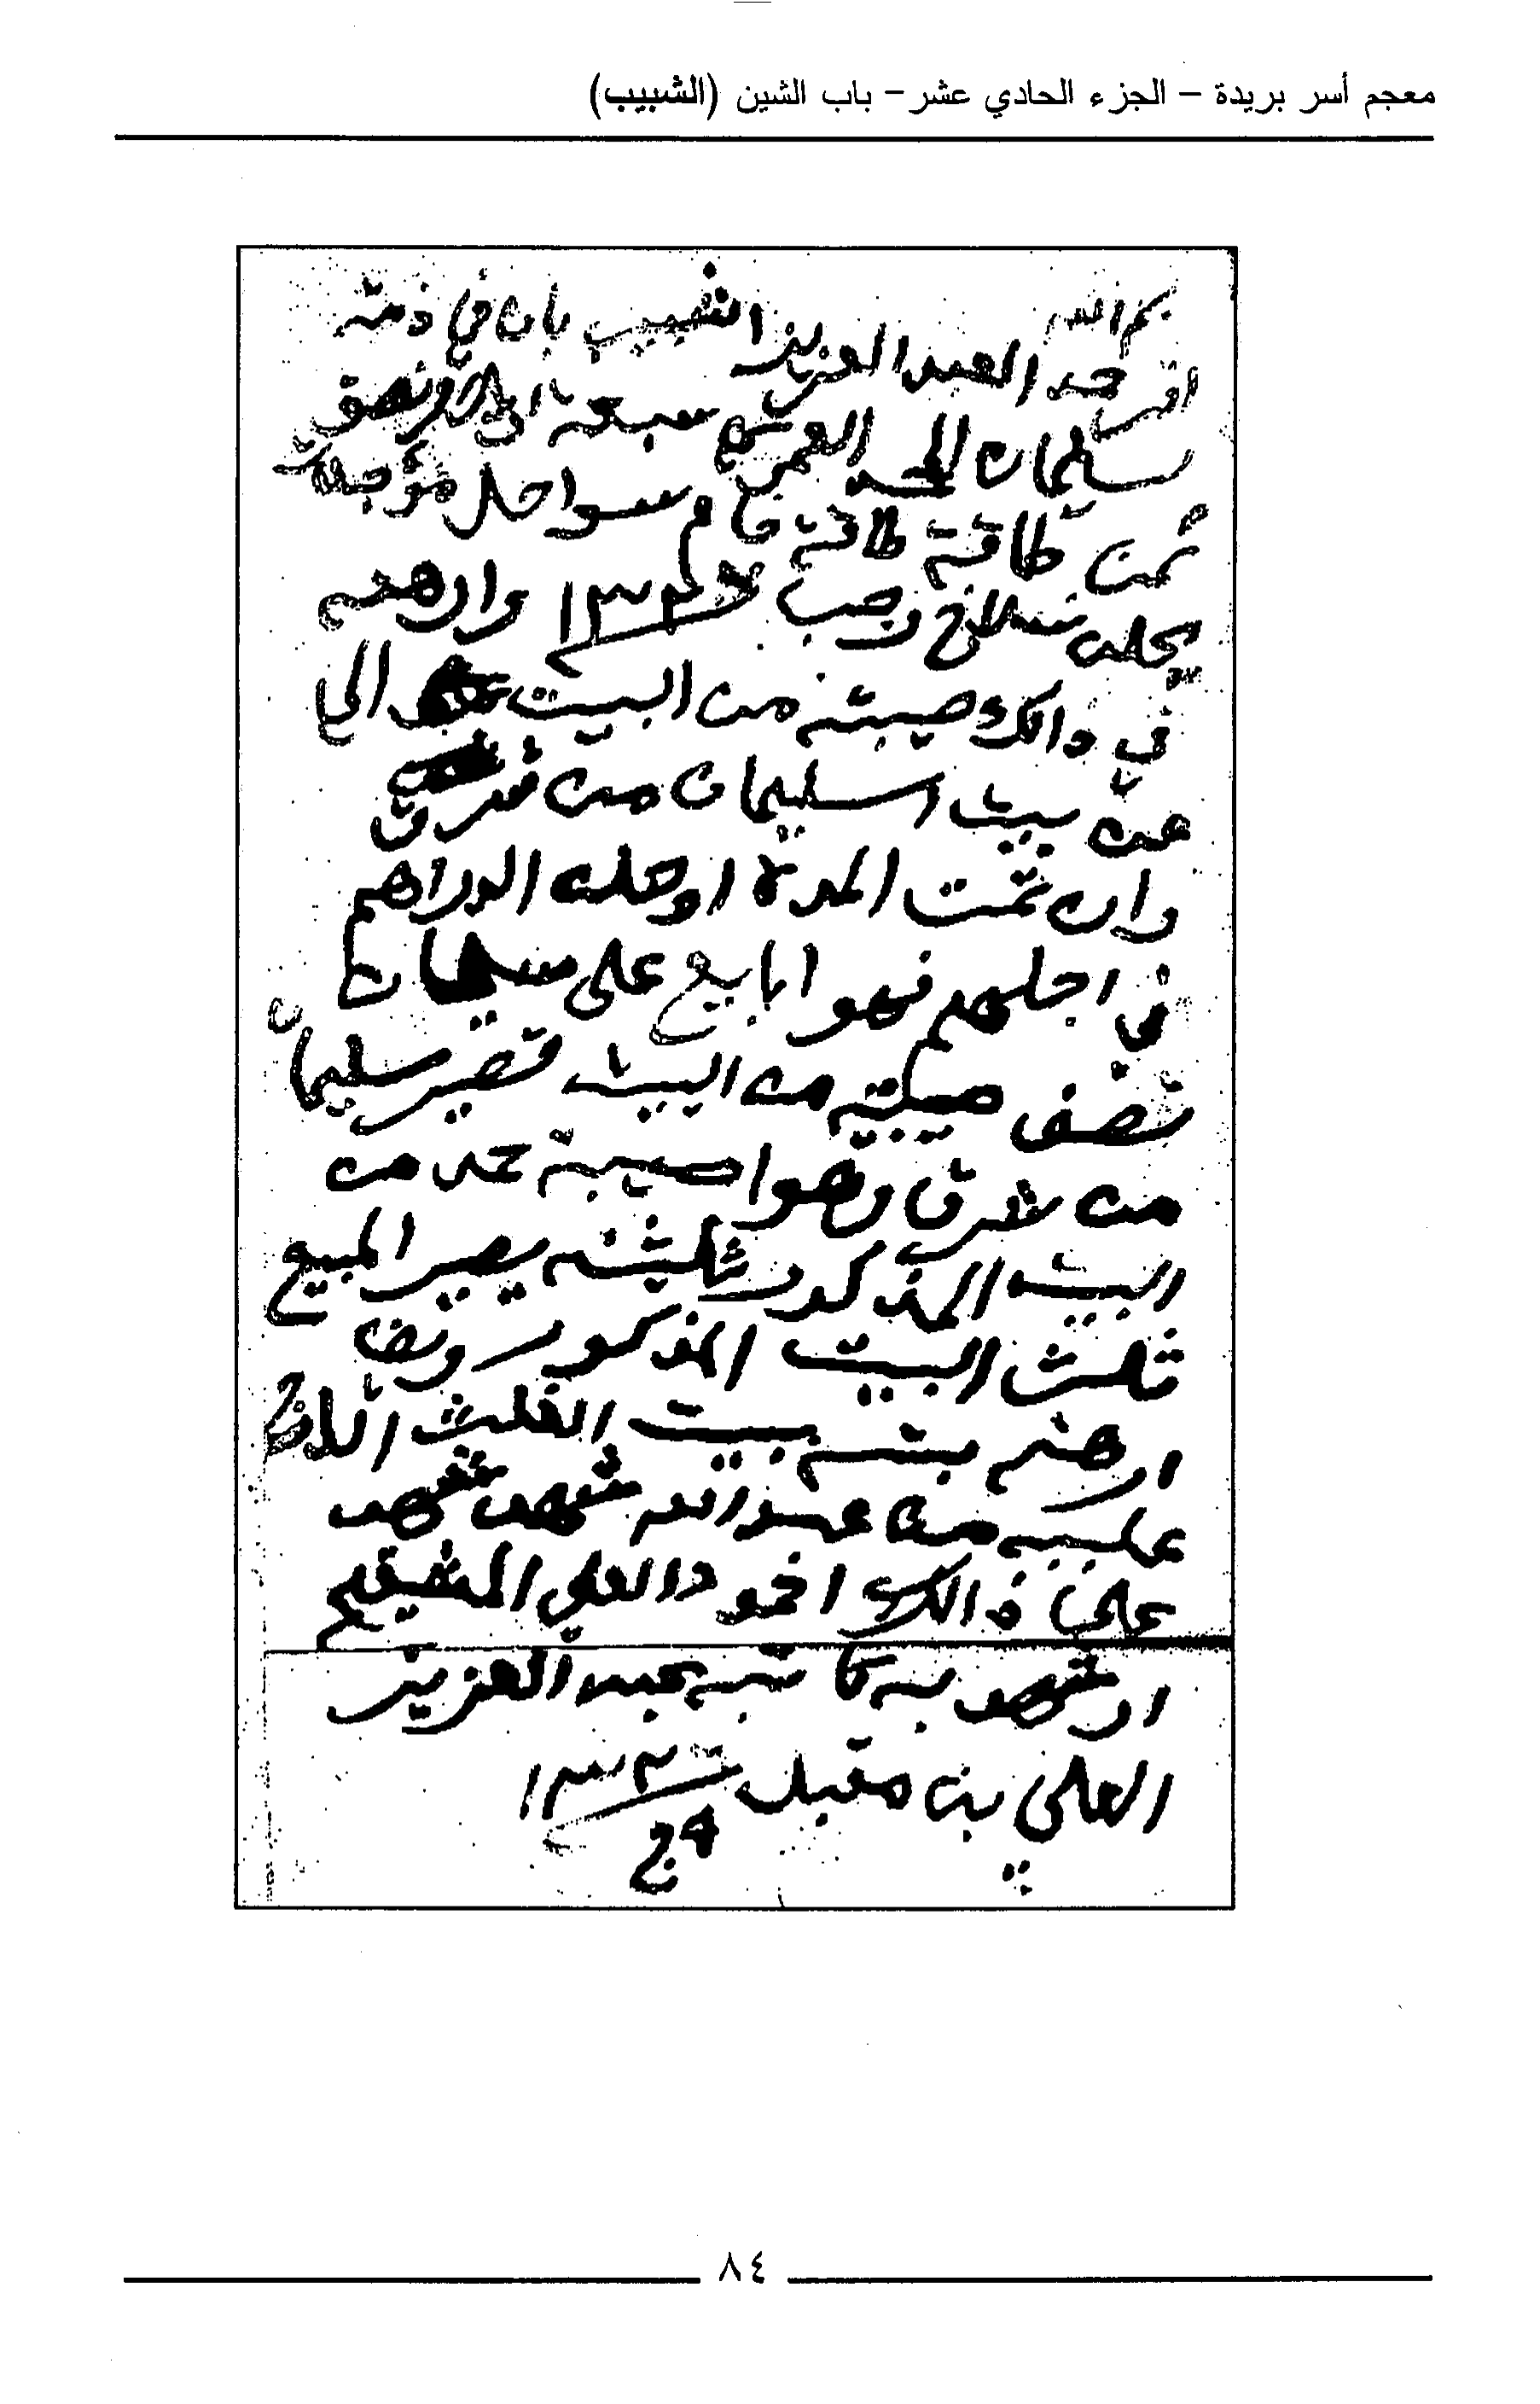 معجم أسر بريدة – الجزء الحادي عشر – باب الشين (الشبيب)
بسم الله
اقر حمد العبدالعزيز الشبيب بان في ذمته
سليمان المحمد العمري سبعة اريل ونصف
ثمن طاقة طاقة خام سواحل مؤجلات
يحلن انسلاخ رجب ١٣٢٦ وارهنه
في ذالك صيبته من البيت الى
عن بيت اسليمان من شرق
وان تمت المدة اوحلن الدراهم
في اجلهم فهو ابايع على سليمان
نصف صيبته من البيت قصير سليمان
من شرق وهوا صيبة حمد من
البيت المذكور ثلثينه يصير المبيع
ثلث البيت المذكور وايضا
ارهنه بيت الثلث
من عبدالله شهد شهد
على ذالك احمود العلي المشيقح
او شهد به كاتبه عبدالعزيز
العلي بن مقبل ١٣٢٦
ج
٨٤